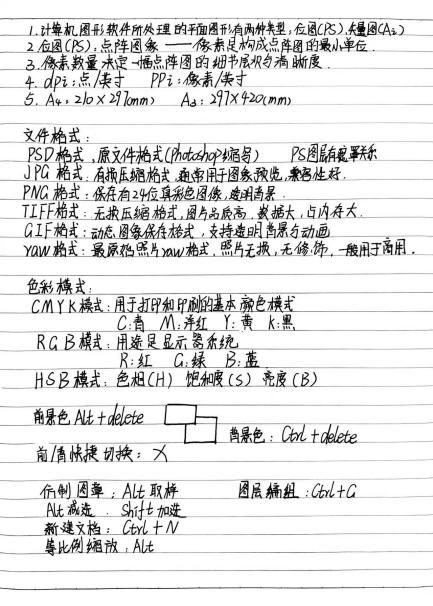 1.计算机图形软件所处理的平面图形有两种类型:位图(PS).矢量图(Ai)
2.位图(PS):点阵图像——像素是构成点阵图的最小单位.
3.像素数量决定一幅点阵图的细节层次与清晰度.
4. dpi:点/英寸 PPi:像素/英寸
5. A4:210×297(mm) A3:297×420(mm)
文件格式:
PSD格式.原文件格式(Photoshop缩写) PS图层有覆罩关系
JPG格式:有损压缩格式,通常用于图像预览,兼容性好.
PNG格式:保存有24位真彩色图像,透明背景.
TIFF格式:无损压缩格式,图片品质高,数据大,占内存大.
GIF格式:动态图像保存格式,支持透明背景与动画
yaw格式:最原档照片yaw格式,照片无损,无修饰,一般用于商用.
色彩模式:
CMYK模式:用于打印和印刷的基本颜色模式
C:青 M:洋红 Y:黄 K:黑
RGB模式:用途是显示器系统
R:红 G:绿 B:蓝
HSB模式:色相(H) 饱和度(S) 亮度(B)
前景色 Alt+delete
背景色:Ctrl+delete
前/背快捷切换:X
仿制图章:Alt取样 图层编组:Ctrl+G
Alt减选 . Shift加选
新建文档:Ctrl+N
等比例缩放:Alt